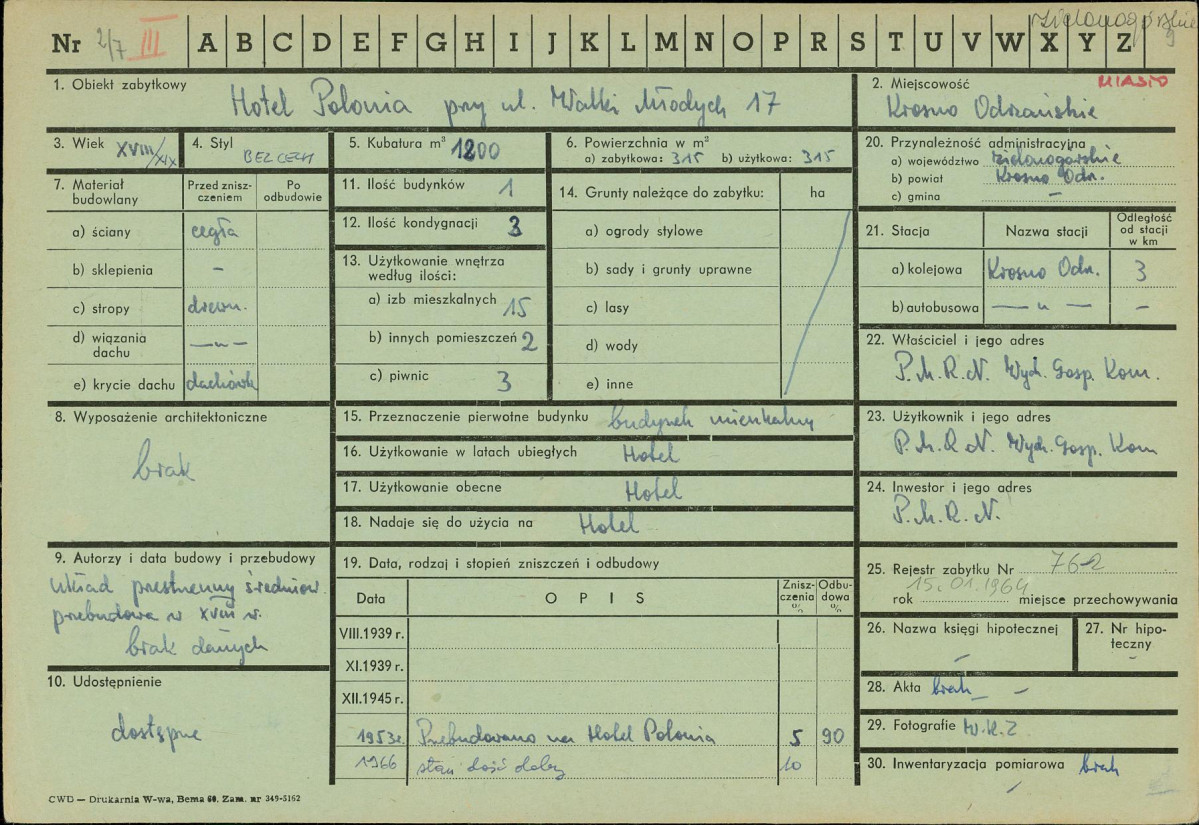 Nr 2/7 III A B C D E F G H I J K L M N O P R S T U V W X Y Z
1. Obiekt zabytkowy
Hotel Polonia przy ul. Walki Młodych 17
2. Miejscowość MIASTO
Krosno Odrzańskie
3. Wiek XVIII/XIX
4. Styl BEZ CECH
5. Kubatura m³ 1200
6. Powierzchnia w m²
a) zabytkowa: 315 b) użytkowa: 315
20. Przynależność administracyjna
a) województwo zielonogórskie
b) powiat Krosno Odr.
c) gmina –
7. Materiał budowlany
Przed zniszczeniem
Po odbudowie
a) ściany cegła
b) sklepienia –
c) stropy drewn.
d) wiązania dachu —„—
e) krycie dachu dachówka
11. Ilość budynków 1
12. Ilość kondygnacji 3
13. Użytkowanie wnętrza według ilości:
a) izb mieszkalnych 15
b) innych pomieszczeń 2
c) piwnic 3
14. Grunty należące do zabytku: ha
a) ogrody stylowe
b) sady i grunty uprawne
c) lasy
d) wody
e) inne
21. Stacja Nazwa stacji Odległość od stacji w km
a) kolejowa Krosno Odr. 3
b) autobusowa — „ — –
22. Właściciel i jego adres
P.M.R.N. Wydz. Gosp. Kom.
8. Wyposażenie architektoniczne
brak
15. Przeznaczenie pierwotne budynku budynek mieszkalny
16. Użytkowanie w latach ubiegłych Hotel
17. Użytkowanie obecne Hotel
18. Nadaje się do użycia na Hotel
23. Użytkownik i jego adres
P.M.R.N. Wydz. Gosp. Kom
24. Inwestor i jego adres
P.M.R.N.
9. Autorzy i data budowy i przebudowy
układ przestrzenny średniow.
przebudowa w XVIII w.
brak danych
10. Udostępnienie
dostępne
19. Data, rodzaj i stopień zniszczeń i odbudowy
Data OPIS Zniszczenia % Odbudowa %
VIII.1939 r.
XI.1939 r.
XII.1945 r.
1953 r. Przebudowano na Hotel Polonia 5 90
1966 stan dość dobry 10
25. Rejestr zabytku Nr 762
rok 15.01.1964 miejsce przechowywania
26. Nazwa księgi hipotecznej –
27. Nr hipoteczny –
28. Akta brak –
29. Fotografie W.K.Z
30. Inwentaryzacja pomiarowa brak
CWD — Drukarnia W-wa, Bema 60. Zam. nr 349-5162